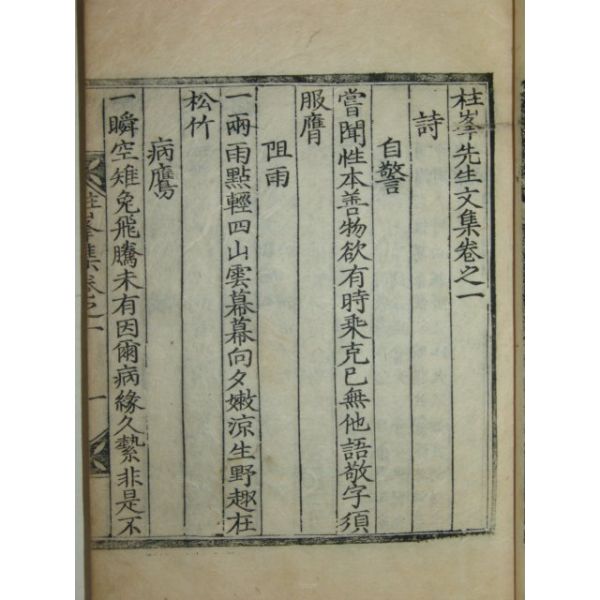 柱峯先生文集卷之一
詩
自警
嘗聞性本善物欲有時乘克己無他語敬字須
服膺
阻雨
一兩雨點輕四山雲幕幕向夕嫩涼生野趣在
松竹
病鷹
一瞬空雉兔飛騰未有因爾病緣久縶非是不
柱峯集卷之一
一